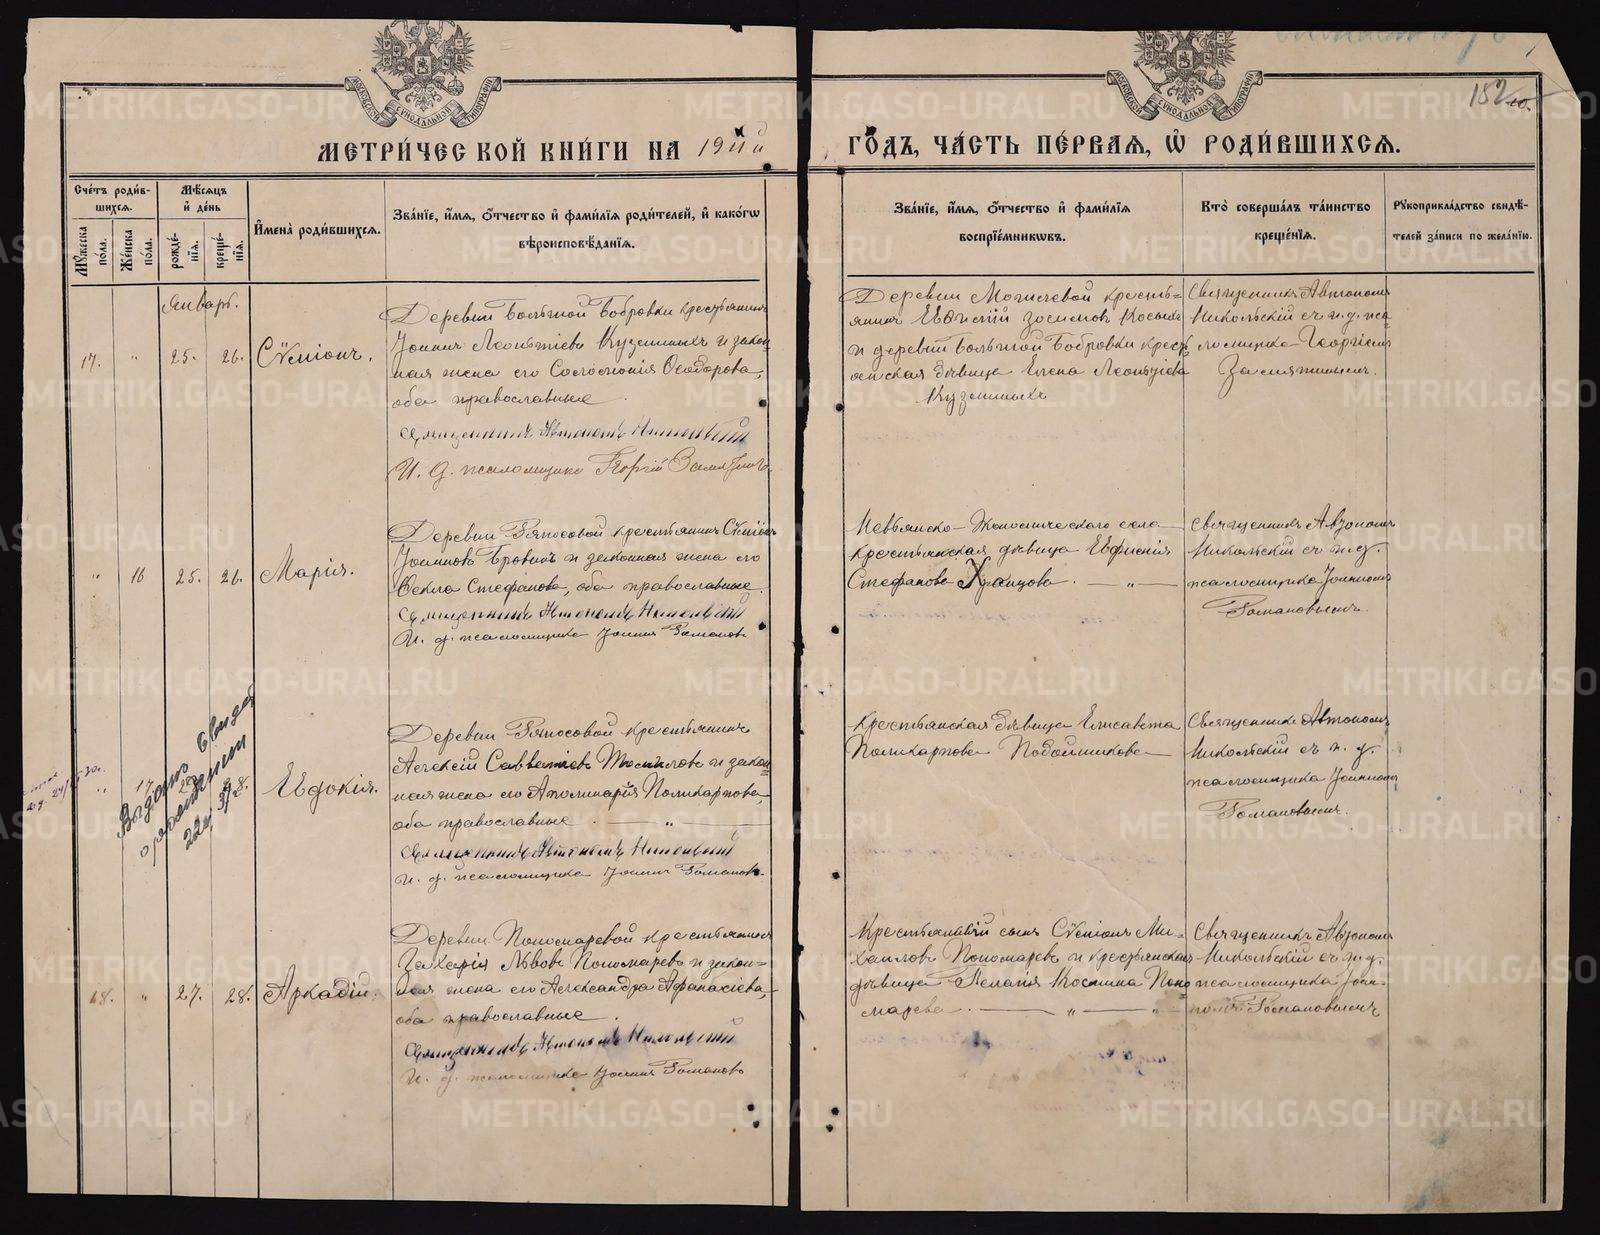 МЕТРИ́ЧЕСКОЙ КНИ́ГИ НА 1911й
ГО́ДЪ, ЧА́СТЬ ПЕ́РВАѦ, Ѽ РОДИ́ВШИХСѦ.
МОСКОВСКОЙ СѴНОДАЛЬНОЙ ТИПОГРАФІИ
МОСКОВСКОЙ СѴНОДАЛЬНОЙ ТИПОГРАФІИ
152
Сче́тъ роди́в-
шихсѧ.
Мꙋ́жеска
по́ла.
Же́нска
по́ла.
Мѣ́сѧцъ
и҆ де́нь
рожде́-
нїѧ.
креще́-
нїѧ.
И҆мена̀ роди́вшихсѧ.
Зва́нїе, и҆́мѧ, ѻ҆́тчество и҆ фами́лїѧ роди́телей, и҆ како́гѡ
вѣроисповѣ́данїѧ.
Зва́нїе, и҆́мѧ, ѻ҆́тчество и҆ фами́лїѧ
воспрїе́мникѡвъ.
Кто̀ соверша́лъ та́инство
креще́нїѧ.
Рꙋкоприкла́дство свидѣ́-
телей за́писи по жела́нїю.
Январь.
17. " 25. 26. Сѵмеонъ.
Деревни Большой Бобровки крестьянинъ
Іоаннъ Леонтіевъ Куземиныхъ и закон-
ная жена его Соломонія Ѳеодорова,
оба православные.
Священникъ Автономъ Никольскій
И. д. псаломщика Георгій Замятинъ
Деревни Могилевой кресть-
янинъ Евѳимій Зосимовъ Косыхъ
и деревни Большой Бобровки кресть-
янская дѣвица Елена Леонтіева
Куземиныхъ
Священникъ Автономъ
Никольскій съ и. д. пса-
ломщика Георгіемъ
Замятинымъ.
" 16 25. 26. Марія.
Деревни Ряпосовой крестьянинъ Сѵмеонъ
Іоанновъ Бровинъ и законная жена его
Ѳекла Стефанова, оба православные.
Священникъ Автономъ Никольскій
И. д. псаломщика Іоаннъ Романовъ
Невьянско-Экономическаго села
крестьянская дѣвица Евфимія
Стефанова Храмцова. — " —
Священникъ Автономъ
Никольскій съ и. д.
псаломщика Іоанномъ
Романовымъ.
" 17 28. Евдокія.
Выдано свид.
о рожденіи
Деревни Ряпосовой крестьянинъ
Алексій Савватіевъ Томиловъ и закон-
ная жена его Аполинарія Поликарпова,
оба православные. — " —
Священникъ Автономъ Никольскій
И. д. псаломщика Іоаннъ Романовъ.
Крестьянская дѣвица Елисавета
Поликарпова Побойщикова —
Священникъ Автономъ
Никольскій съ и. д.
псаломщика Іоанномъ
Романовымъ.
18. " 27. 28. Аркадій.
Деревни Пономаревой крестьянинъ
Захарія Львовъ Пономаревъ и закон-
ная жена его Александра Аѳанасіева,
оба православные.
Священникъ Автономъ Никольскій
И. д. псаломщика Іоаннъ Романовъ
Крестьянскій сынъ Сѵмеонъ Ми-
хаиловъ Пономаревъ и крестьянская
дѣвица Пелагія Космина Поно-
марева. — " — " —
Священникъ Автономъ
Никольскій съ и. д.
псаломщика Іоан-
номъ Романовымъ
METRIKI.GASO-URAL.RU